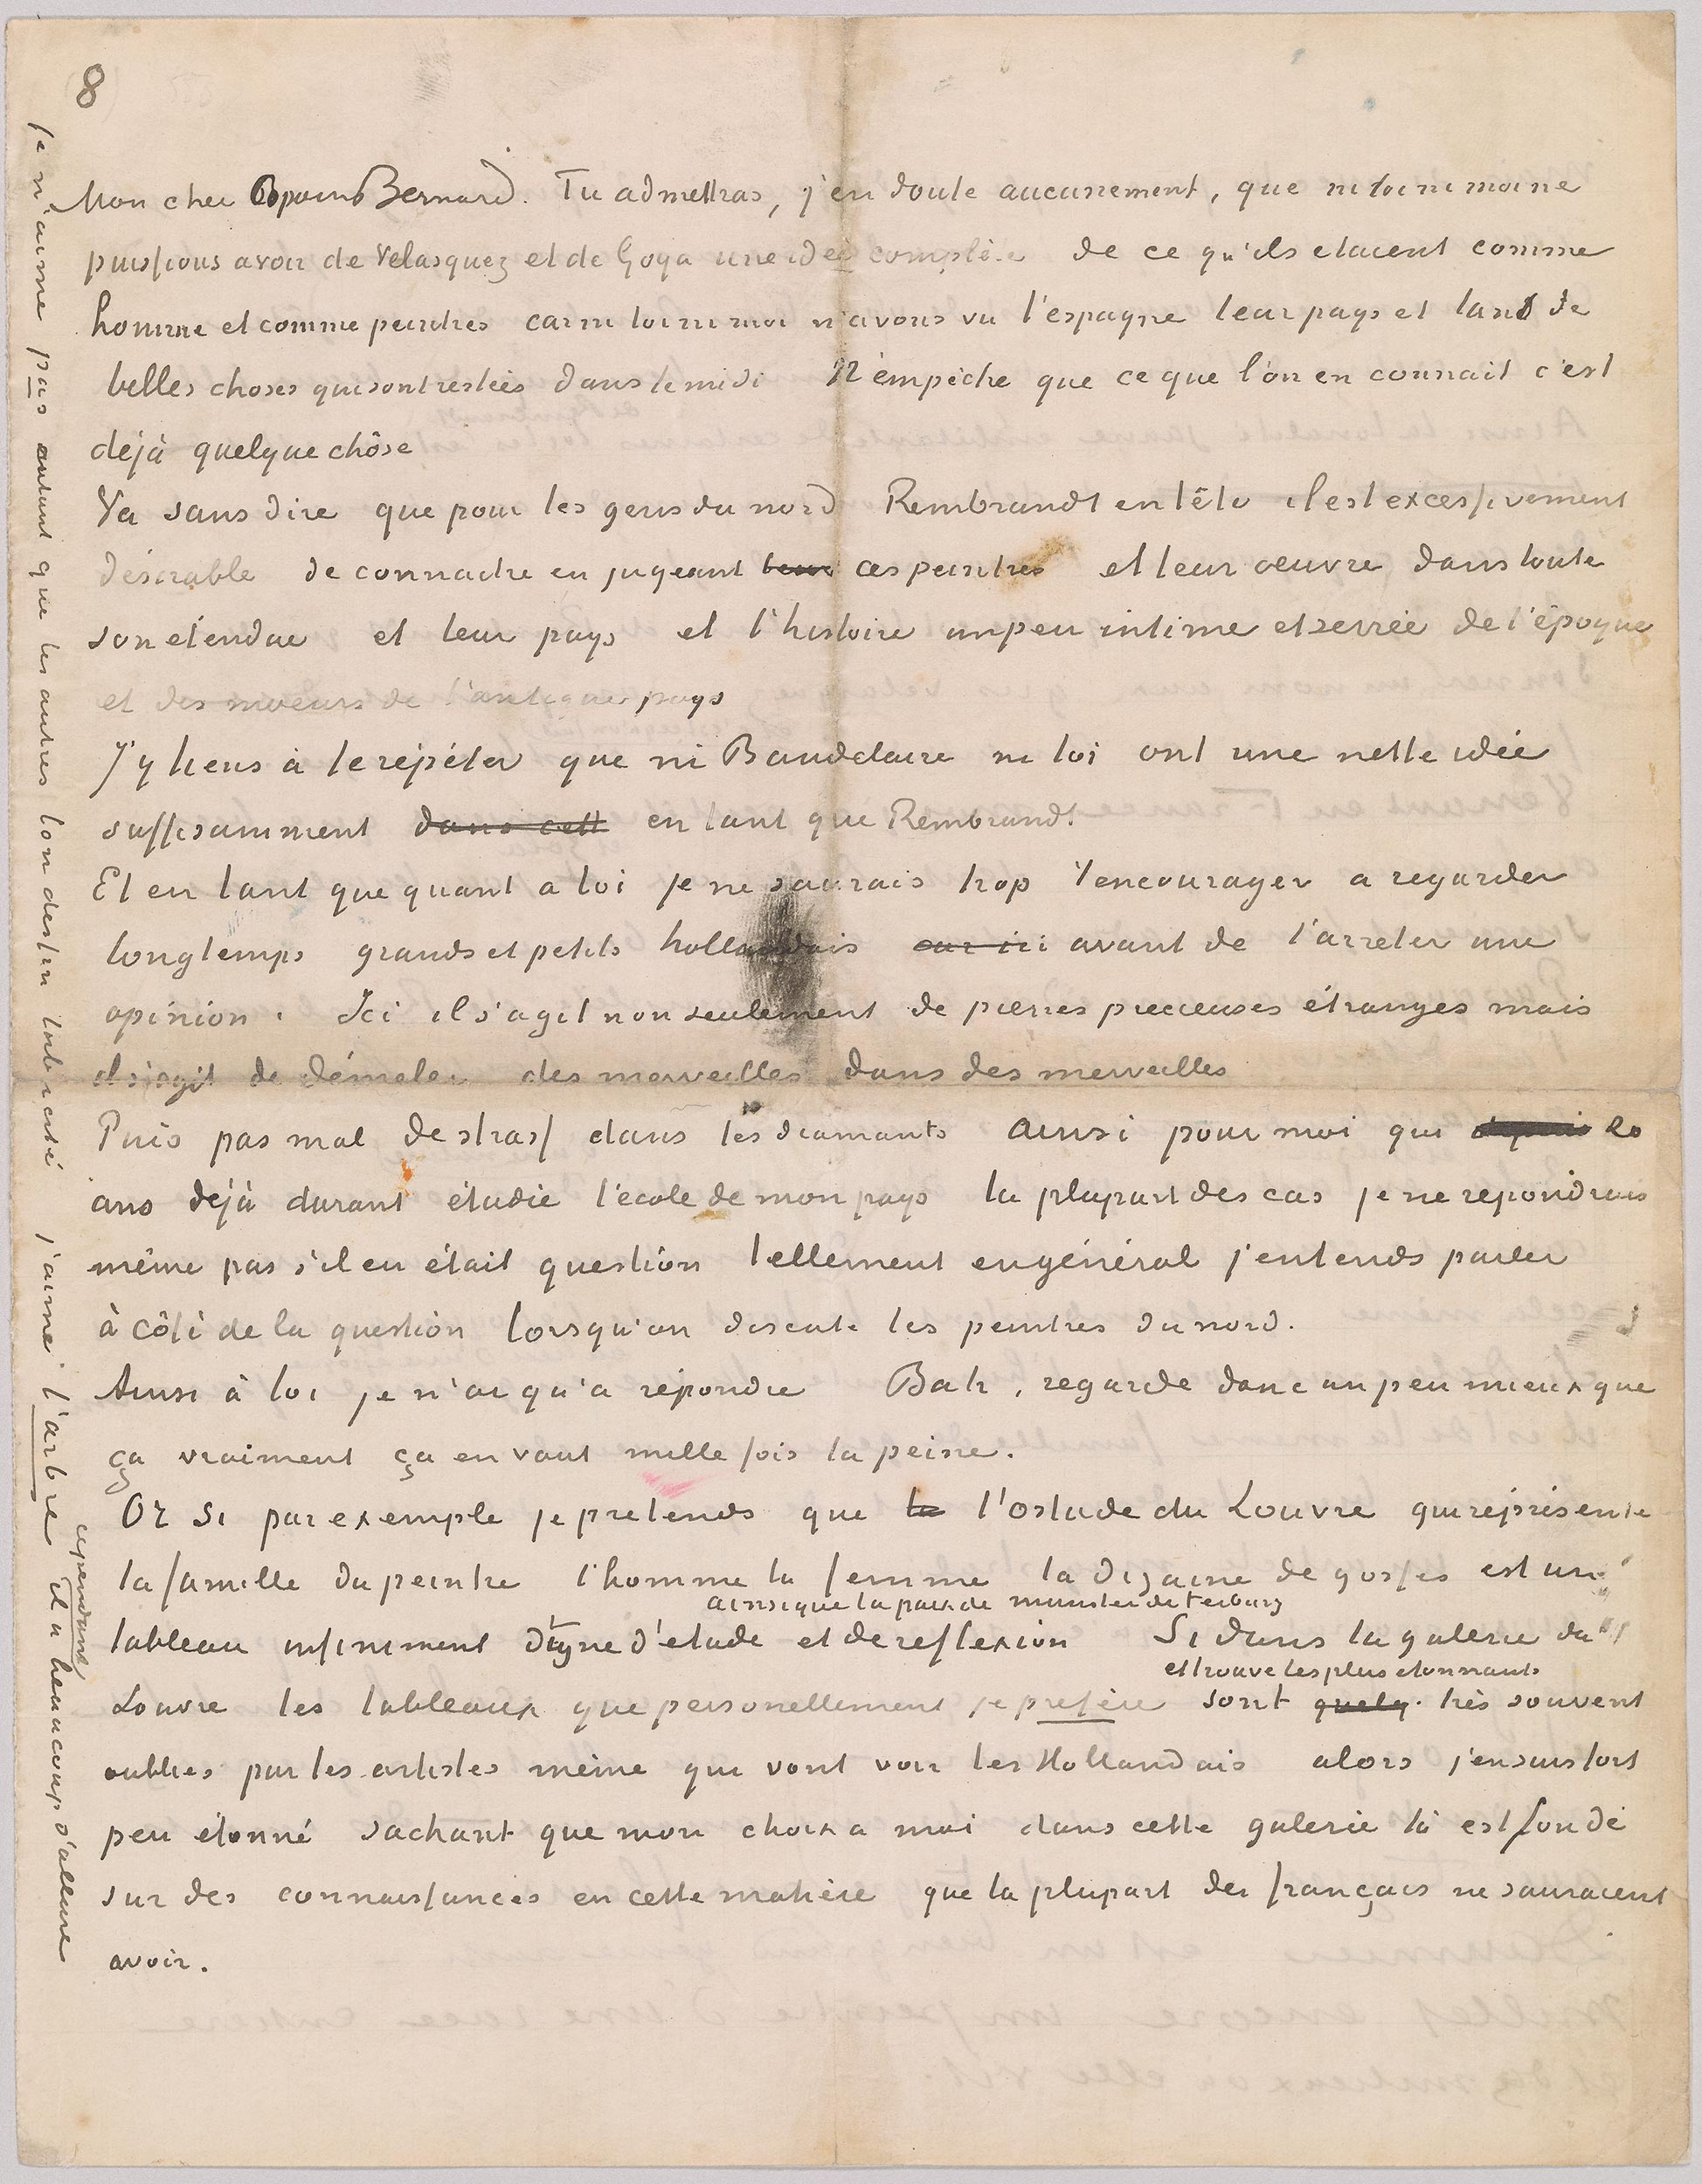 8
Mon cher copain Bernard. Tu admettras, j'en doute aucunement, que ni toi ni moi ne
puissions avoir de Velasquez et de Goya une idée complète de ce qu'ils etaient comme
homme et comme peintres car ni toi ni moi n'avons vu l'espagne leur pays et tant de
belles choses qui sont restées dans le midi N'empêche que ce que l'on en connait c'est
déjà quelque chôse
Va sans dire que pour les gens du nord Rembrandt en tête il est excessivement
désirable de connaitre en jugeant ces peintres et leur oeuvre dans toute
son etendue et leur pays et l'histoire un peu intime et serrée de l'époque
et des moeurs de l'antique pays
J'y tiens à te répéter que ni Baudelaire ni toi ont une nette idée
suffisamment dans cett en tant que Rembrandt
Et en tant que quant a toi je ne saurais trop t'encourager a regarder
longtemps grands et petits hollandais car ici avant de t'arreter une
opinion. Ici il s'agit non seulement de pierres precieuses étranges mais
il s'agit de démeler des merveilles dans des merveilles
Puis pas mal de strass dans les diamants ainsi pour moi qui depuis 20
ans dejà durant étudie l'école de mon pays la plupart des cas je ne repondrais
même pas s'il en était question tellement en général j'entends parler
à côté de la question lorsqu'on discute les peintres du nord.
Ainsi à toi je n'ai qu'a répondre Bah, regarde donc un peu mieux que
ça vraiment ça en vaut mille fois la peine.
Or si par exemple je pretends que le l'ostade du Louvre qui réprésente
la famille du peintre l'homme la femme la dizaine de gosses est un
ainsi que la paix de munster de Terburg
tableau infiniment digne d'etude et de reflexion Si dans la galerie du
et trouve les plus etonnants
Louvre les tableaux que personellement je prefère sont quelq. très souvent
oubliés par les artistes même qui vont voir les Hollandais alors j'en suis fort
peu étonné sachant que mon choix a moi dans cette galerie là est fondé
sur des connaissances en cette matière que la plupart des français ne sauraient
avoir.
je n'aime pas autant que les autres ton dessin lubricité j'aime l'arbre il a beaucoup d'allure
cependant